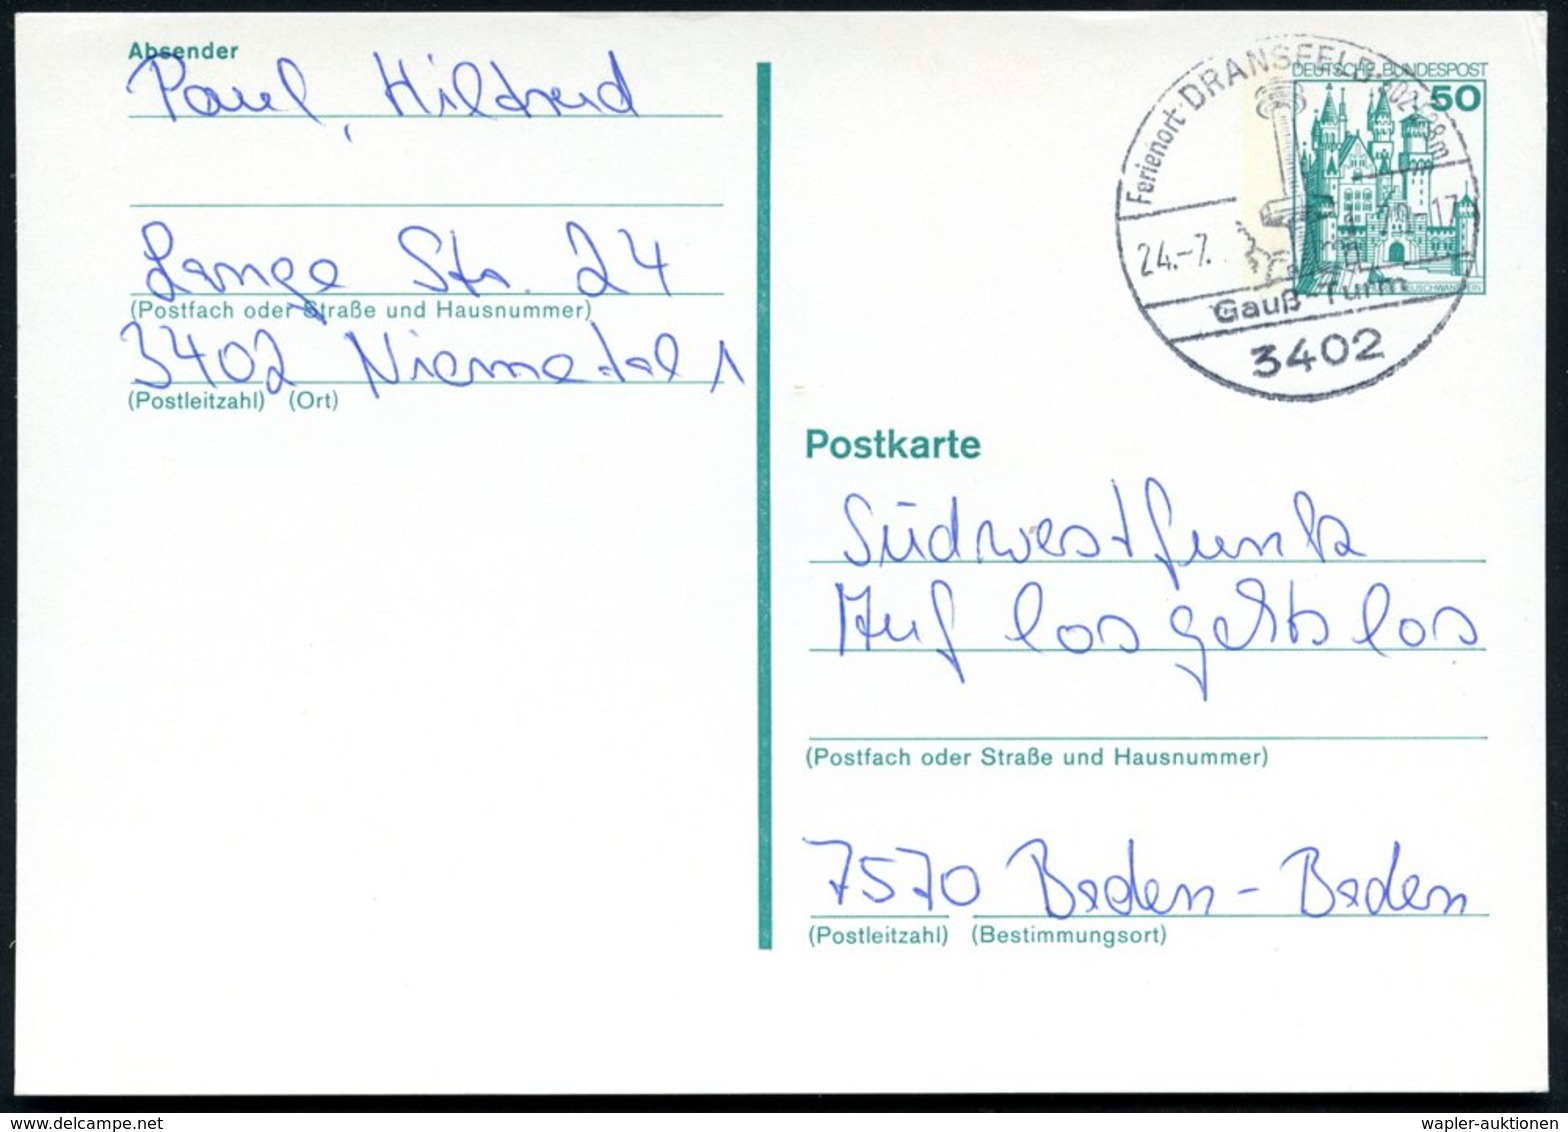 Absender
Paul, Hildrud
Lange Str. 24
(Postfach oder Straße und Hausnummer)
3402 Niemetal 1
(Postleitzahl) (Ort)
DEUTSCHE BUNDESPOST
50
Ferienort DRANSFELD
24.-7.
17
Gauß-Turm
3402
Postkarte
Südwestfunk
Auf los gehts los
(Postfach oder Straße und Hausnummer)
7570 Baden-Baden
(Postleitzahl) (Bestimmungsort)
wapler-auktionen